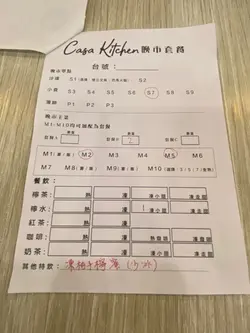 Casa Kitchen 晚市套餐
台號:
晚市單點
沙律 S1 S2
小食 S3 S4 S5 S6 S7 S8 S9
薄餅 P1 P2 P3
晚市主菜
M1-M10均可細配為套餐
M1 M2 M3 M4 M5 M6
M7 M8 M9 M10
餐飲:
檸茶: 熱 凍 凍小甜 凍走甜
檸水: 熱 凍 1 凍小甜 凍走甜
紅茶: 熱 凍 凍小甜 凍走甜
咖啡: 熱 凍 熱齋啡 凍齋啡
奶茶: 熱 凍 凍小甜 凍走甜
其他特飲: 凍柚子檸蜜 (少冰)